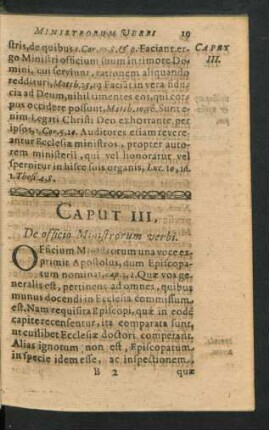 MINISTRORUM VERBI 19
stris, de quibus 1. Cor. & 9. Faciant er-
CAPUT
III.
go Ministri officium suum in timore Do-
mini, cui serviunt, rationem aliquando
reddituri, Matth. 25, 19 Faciāt in vera fidu-
cia ad Deum, nihil timentes eos, qui cor-
pus occidere possunt, Matth. 10, 28. Sunt e-
nim Legati Christi Deo exhortante per
ipsos, 2 Cor. 5. 20. Auditores etiam revere-
antur Ecclesiæ ministros, propter auto-
rem ministerii, qui vel honoratur vel
spernitur in hisce suis organis, Luc. 10, 16.
1. Thess. 4. 8.
CAPUT III.
De officio Ministrorum verbi.
OFficium Ministrorum una voce ex-
primit Apostolus, dum Episcopa-
tum nominat, Quæ vox ge-
neralis est, pertinens ad omnes, quibus
munus docendi in Ecclesia commissum
est. Nam requisita Episcopi, quæ in eodē
capite recensentur, ita comparata sunt,
ut cuilibet Ecclesiæ doctori competant.
Alias ignotum non est, Episcopatum
in specie idem esse, ac inspectionem,
B 2 quæ